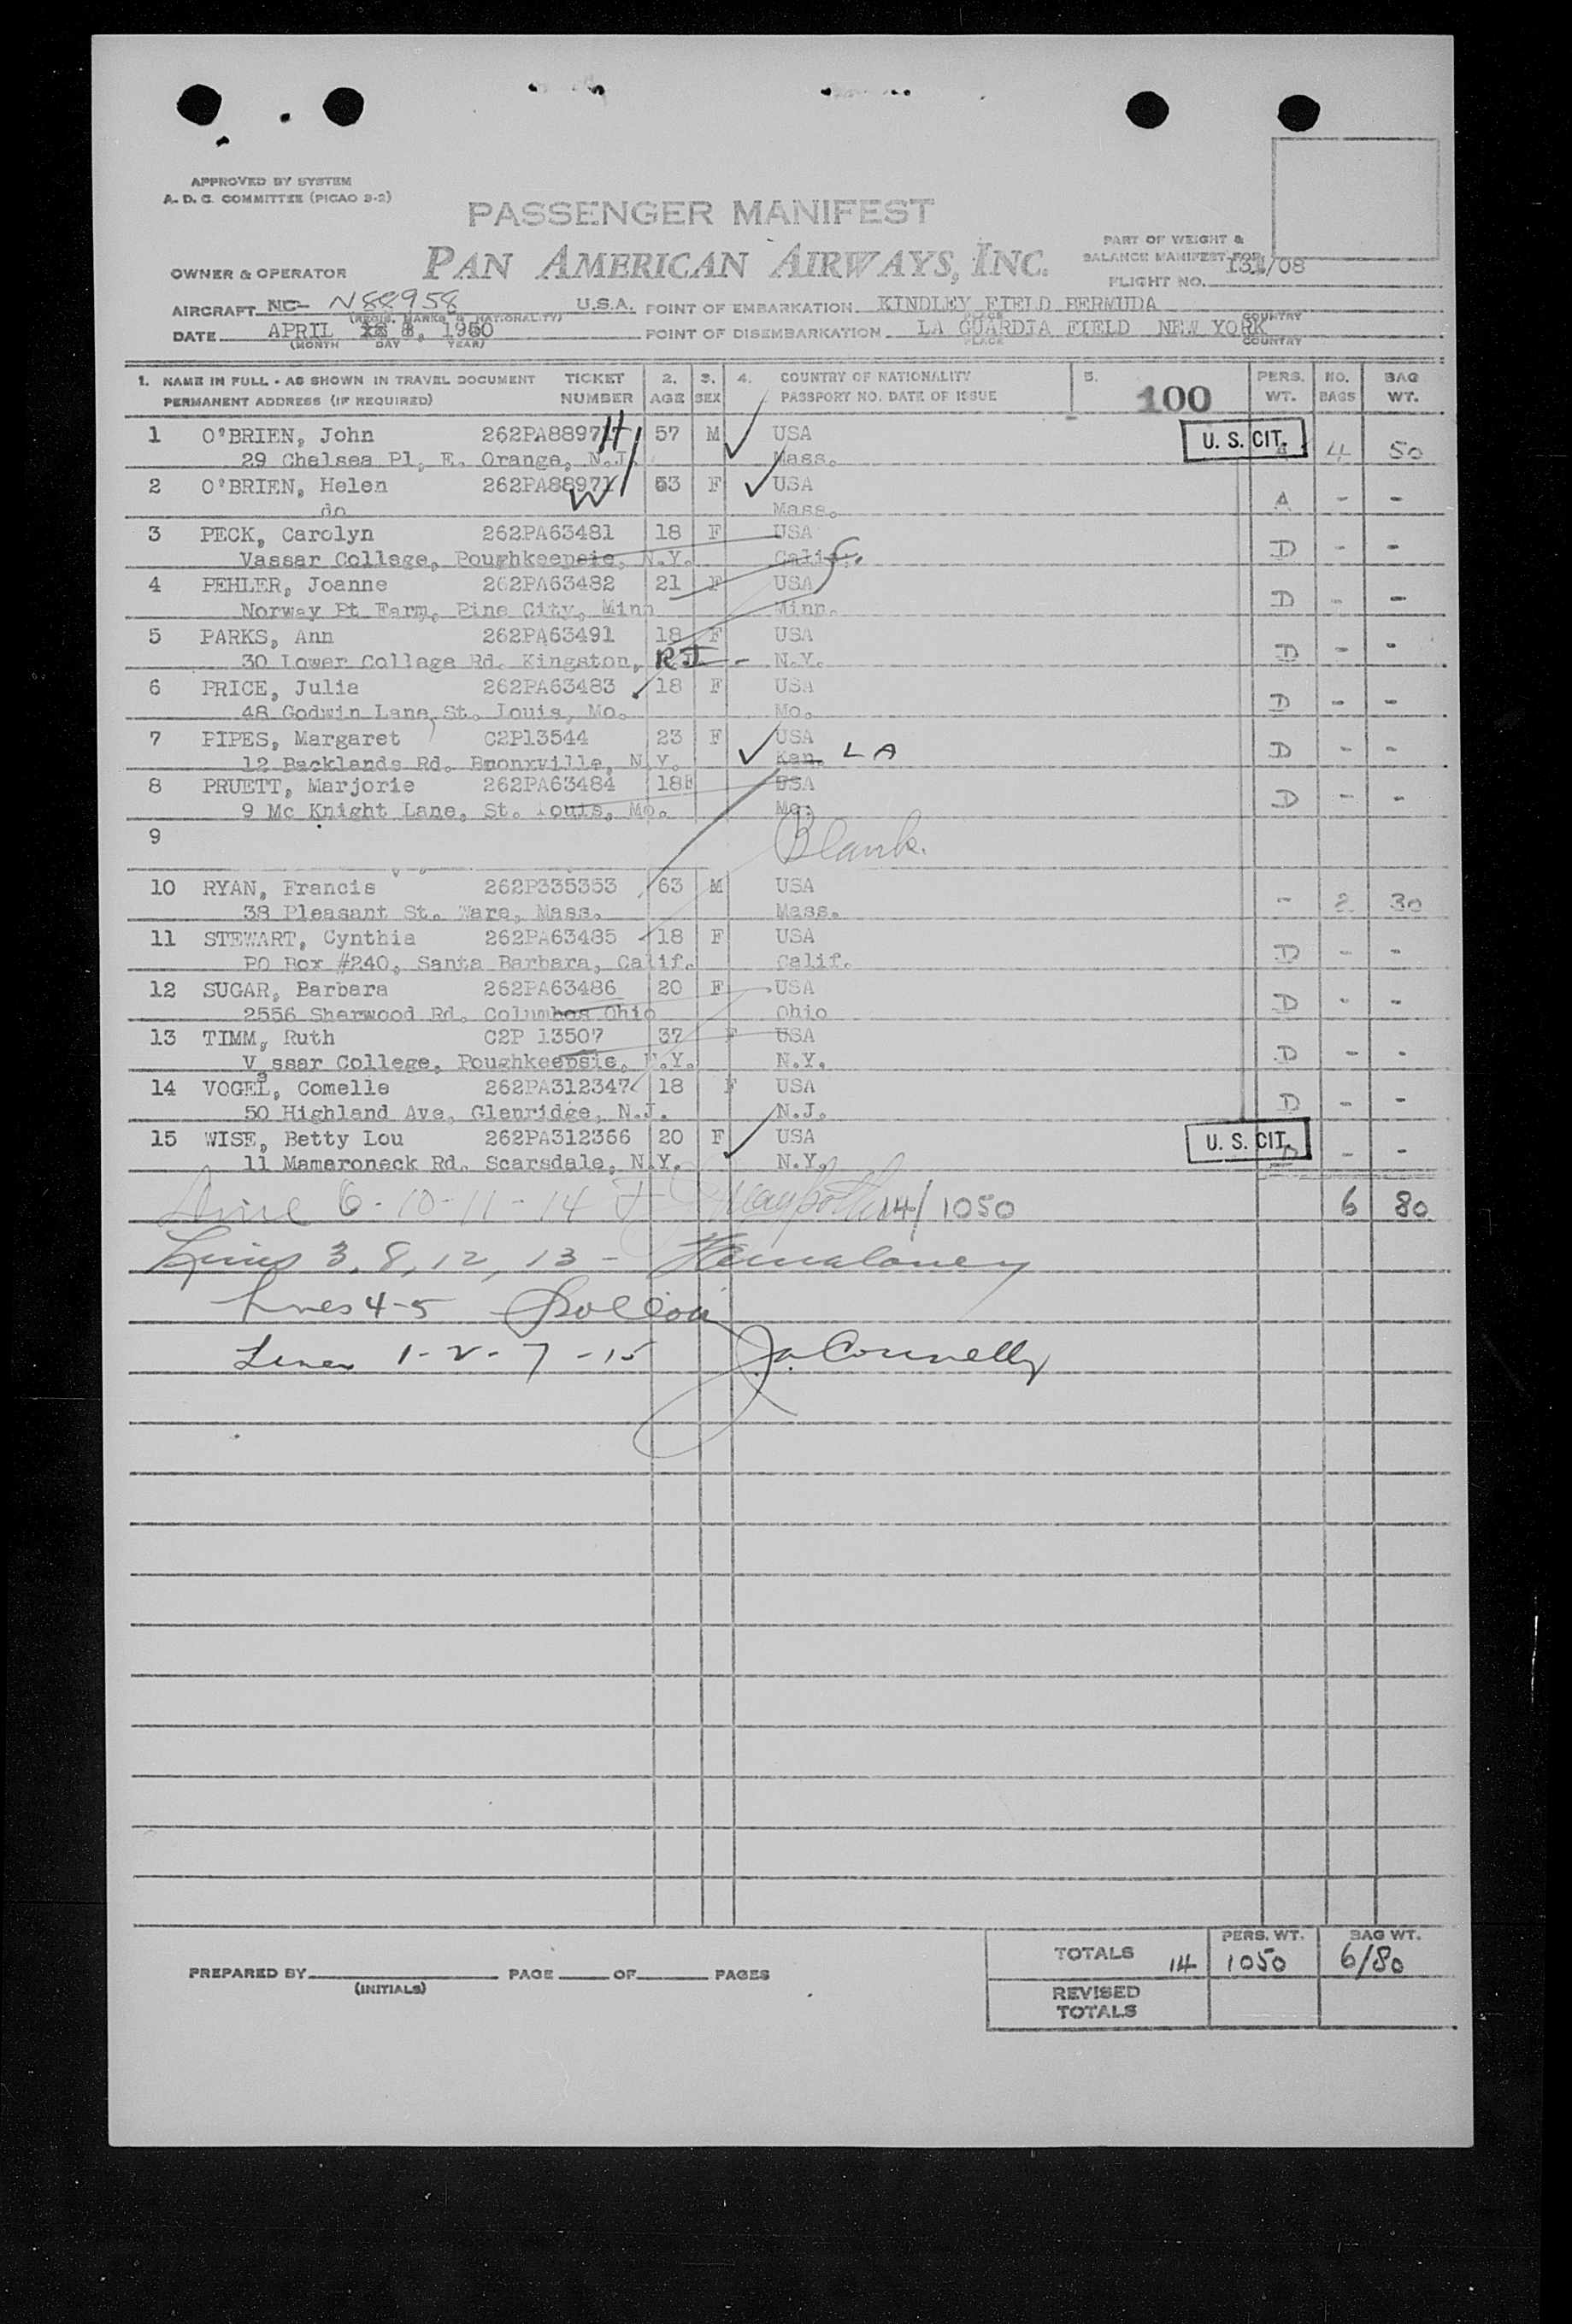 APPROVED BY SYSTEM
A. D. C. COMMITTEE (PICAO S-2)
PASSENGER MANIFEST
PAN AMERICAN AIRWAYS, INC.
PART OF WEIGHT &
BALANCE MANIFEST FOR
FLIGHT NO. 131/08
OWNER & OPERATOR
AIRCRAFT NC- N88958 U.S.A. POINT OF EMBARKATION KINDLEY FIELD BERMUDA
(REGIS. MARKS & NATIONALITY) PLACE COUNTRY
DATE APRIL 8, 1950 POINT OF DISEMBARKATION LA GUARDIA FIELD NEW YORK
(MONTH DAY YEAR) PLACE COUNTRY
1. NAME IN FULL - AS SHOWN IN TRAVEL DOCUMENT TICKET 2. 3. 4. COUNTRY OF NATIONALITY 5. 100 PERS. NO. BAG
PERMANENT ADDRESS (IF REQUIRED) NUMBER AGE SEX PASSPORT NO. DATE OF ISSUE WT. BAGS WT.
1 O'BRIEN, John 262PA88971 H 57 M USA U. S. CIT. 4 50
29 Chelsea Pl, E. Orange, N.J. Mass. A
2 O'BRIEN, Helen 262PA88971 W 53 F USA
do Mass. A - -
3 PECK, Carolyn 262PA63481 18 F USA
Vassar College, Poughkeepsie, N.Y. Calif. D - -
4 PEHLER, Joanne 262PA63482 21 F USA
Norway Pt Farm, Pine City, Minn Minn. D - -
5 PARKS, Ann 262PA63491 18 F USA
30 Lower College Rd. Kingston, RI - N.Y. D - -
6 PRICE, Julia 262PA63483 18 F USA
48 Godwin Lane, St. Louis, Mo. Mo. D - -
7 PIPES, Margaret C2P13544 23 F USA
12 Backlands Rd. Bronxville, N.Y. Kan. LA D - -
8 PRUETT, Marjorie 262PA63484 18F USA
9 Mc Knight Lane, St. Louis, Mo. Mo. D - -
9 Blank.
10 RYAN, Francis 262P335353 63 M USA
38 Pleasant St. Ware, Mass. Mass. - 2 30
11 STEWART, Cynthia 262PA63485 18 F USA
PO Box #240, Santa Barbara, Calif. Calif. D - -
12 SUGAR, Barbara 262PA63486 20 F USA
2556 Sherwood Rd. Columbos Ohio Ohio D - -
13 TIMM, Ruth C2P 13507 37 F USA
Vassar College, Poughkeepsie, N.Y. N.Y. D - -
14 VOGEL, Comelle 262PA312347 18 F USA
50 Highland Ave, Glenridge, N.J. N.J. D - -
15 WISE, Betty Lou 262PA312366 20 F USA U. S. CIT.
11 Mamaroneck Rd. Scarsdale, N.Y. N.Y. D - -
6-10-11-14 14/1050 6 80
Lines 3, 8, 12, 13 -
Lines 4-5
Lines 1-2-7-15 Connelly
TOTALS 14 PERS. WT. 1050 BAG WT. 6/80
PREPARED BY PAGE OF PAGES
(INITIALS)
REVISED
TOTALS